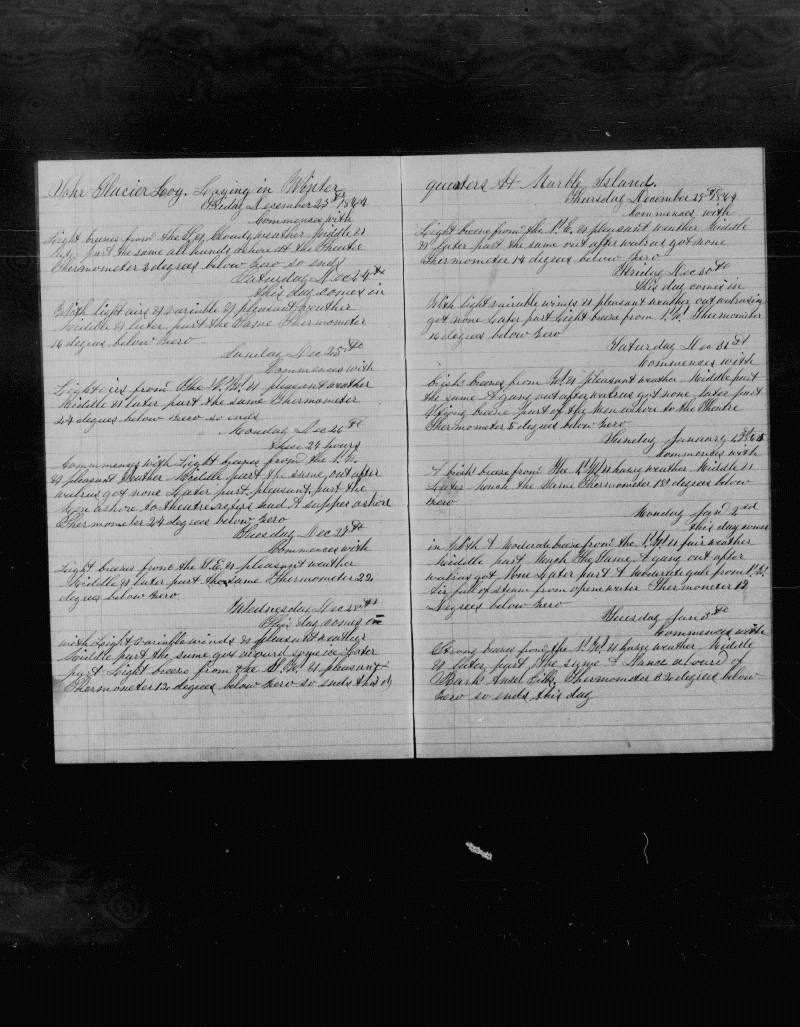 Glacier Log. Laying in Winter
Friday December 23rd 1864
Commences with
Light breeses from the Cloudy weather Middle &
part the same all hands ashore at the Theatre
Thermometer 3 degrees below Zero so ends
Saturday Dec 24th
this day comes in
With light airs & variable & pleasant weather
Middle & later part the Same Thermometer
16 degrees below Zero
Sunday Dec 25th
Commences with
Light airs from the N.W. & pleasant weather
Middle & later part the same Thermometer
24 degrees below Zero so ends
Monday Dec 26th
these 24 hours
Commences with Light breeses from the N.W.
& pleasant weather Middle part the same, out after
walrus got none Later part pleasant, part the
Men ashore to theatre actors had A supper ashore
Thermometer 24 degrees below Zero
Tuesday Dec 27th
Commences with
Light breeses from the & pleasant weather
Middle & later part the same Thermometer 22
degrees below Zero.
Wednesday Dec 28th
this day comes in
with Light Variable winds & pleasant weather
Middle part the same got aboard some ice Later
part Light breese from the & pleasant
Thermometer 12 degrees below Zero so ends this
quarters At Marble Island.
Thursday December 29th 1864
Commences with
Light breese from the & pleasant weather Middle
& Later part the same out after walrus got none
Thermometer 14 degrees below Zero
Friday Dec 30th
this day comes in
With light vairable winds & pleasant weather out walrusing
got none Later part Light breese from N.W. Thermometer
16 degrees below Zero
Saturday Dec 31st
Commences with
brisk breeses from & pleasant weather Middle part
the same A gang out after walrus got none Later part
Strong breese part of the Men ashore to the Theatre
Thermometer 5 degrees below Zero
Sunday January 1st 1865
Commences with
A brisk breese from the N.W. & hasey weather Middle &
Later much the Same Thermometer 18 degrees below
Zero
Monday Jan 2nd
this day comes
in with A Moderate breese from the N.W. & fair weather
Middle part Much the Same A gang out after
walrus got None Later part A Moderate gale from N.W.
Air full of steam from open water Thermometer 18
Degrees below Zero
Tuesday Jan 3rd
Commences with
Strong breeses from the N.W. & hasey weather Middle
& later part the same A Dance aboard of
Bark Ansel Gibbs Thermometer 32 degrees below
Zero so ends this day